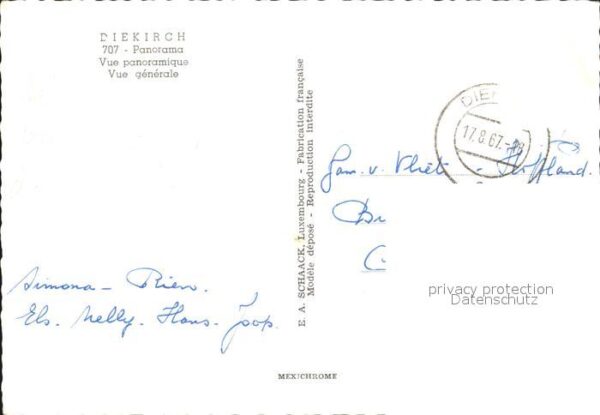 DIEKIRCH
707 - Panorama
Vue panoramique
Vue générale
E. A. SCHAACK, Luxembourg - Fabrication française
Modèle déposé - Reproduction interdite
DIE
17.8.67.-18
Fam. v. Vliet -
Br
C
privacy protection
Datenschutz
Simona - Rien.
Els. Nelly. Hans. Joop.
MEXICHROME